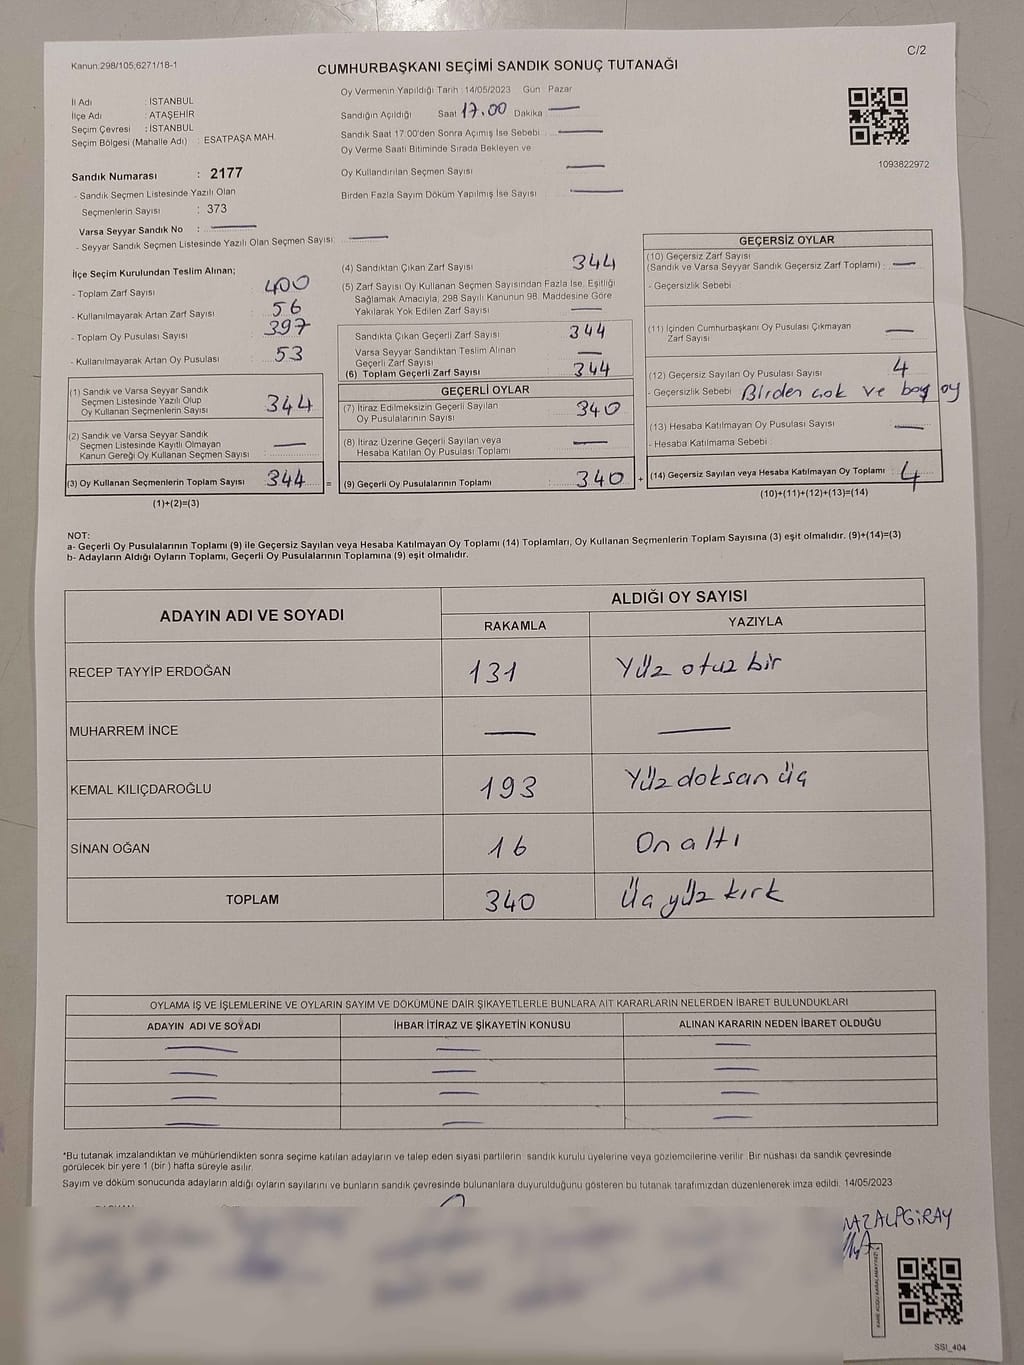 C/2
Kanun:298/105,6271/18-1
CUMHURBAŞKANI SEÇİMİ SANDIK SONUÇ TUTANAĞI
İl Adı : İSTANBUL
İlçe Adı : ATAŞEHİR
Seçim Çevresi : İSTANBUL
Seçim Bölgesi (Mahalle Adı) : ESATPAŞA MAH.
Sandık Numarası : 2177
- Sandık Seçmen Listesinde Yazılı Olan
Seçmenlerin Sayısı : 373
Varsa Seyyar Sandık No :
- Seyyar Sandık Seçmen Listesinde Yazılı Olan Seçmen Sayısı:
Oy Vermenin Yapıldığı Tarih : 14/05/2023 Gün : Pazar
Sandığın Açıldığı Saat 17.00 Dakika :
Sandık Saat 17:00'den Sonra Açımış İse Sebebi :
Oy Verme Saati Bitiminde Sırada Bekleyen ve
Oy Kullandırılan Seçmen Sayısı
Birden Fazla Sayım Döküm Yapılmış İse Sayısı :
1093822972
İlçe Seçim Kurulundan Teslim Alınan;
- Toplam Zarf Sayısı : 400
- Kullanılmayarak Artan Zarf Sayısı : 56
- Toplam Oy Pusulası Sayısı : 397
- Kullanılmayarak Artan Oy Pusulası : 53
(1) Sandık ve Varsa Seyyar Sandık
Seçmen Listesinde Yazılı Olup
Oy Kullanan Seçmenlerin Sayısı : 344
(2) Sandık ve Varsa Seyyar Sandık
Seçmen Listesinde Kayıtlı Olmayan
Kanun Gereği Oy Kullanan Seçmen Sayısı :
(3) Oy Kullanan Seçmenlerin Toplam Sayısı : 344 =
(1)+(2)=(3)
(4) Sandıktan Çıkan Zarf Sayısı 344
(5) Zarf Sayısı Oy Kullanan Seçmen Sayısından Fazla İse, Eşitliği
Sağlamak Amacıyla, 298 Sayılı Kanunun 98. Maddesine Göre
Yakılarak Yok Edilen Zarf Sayısı :
Sandıkta Çıkan Geçerli Zarf Sayısı : 344
Varsa Seyyar Sandıktan Teslim Alınan
Geçerli Zarf Sayısı
(6) Toplam Geçerli Zarf Sayısı : 344
GEÇERLİ OYLAR
(7) İtiraz Edilmeksizin Geçerli Sayılan
Oy Pusulalarının Sayısı : 340
(8) İtiraz Üzerine Geçerli Sayılan veya
Hesaba Katılan Oy Pusulası Toplamı :
(9) Geçerli Oy Pusulalarının Toplamı : 340 +
GEÇERSİZ OYLAR
(10) Geçersiz Zarf Sayısı
(Sandık ve Varsa Seyyar Sandık Geçersiz Zarf Toplamı) :
- Geçersizlik Sebebi :
(11) İçinden Cumhurbaşkanı Oy Pusulası Çıkmayan
Zarf Sayısı :
(12) Geçersiz Sayılan Oy Pusulası Sayısı : 4
- Geçersizlik Sebebi Birden çok ve boş oy
(13) Hesaba Katılmayan Oy Pusulası Sayısı :
- Hesaba Katılmama Sebebi :
(14) Geçersiz Sayılan veya Hesaba Katılmayan Oy Toplamı : 4
(10)+(11)+(12)+(13)=(14)
NOT:
a- Geçerli Oy Pusulalarının Toplamı (9) ile Geçersiz Sayılan veya Hesaba Katılmayan Oy Toplamı (14) Toplamları, Oy Kullanan Seçmenlerin Toplam Sayısına (3) eşit olmalıdır. (9)+(14)=(3)
b- Adayların Aldığı Oyların Toplamı, Geçerli Oy Pusulalarının Toplamına (9) eşit olmalıdır.
ADAYIN ADI VE SOYADI ALDIĞI OY SAYISI
RAKAMLA YAZIYLA
RECEP TAYYİP ERDOĞAN 131 Yüz otuz bir
MUHARREM İNCE
KEMAL KILIÇDAROĞLU 193 Yüz doksan üç
SİNAN OĞAN 16 On altı
TOPLAM 340 Üç yüz kırk
OYLAMA İŞ VE İŞLEMLERİNE VE OYLARIN SAYIM VE DÖKÜMÜNE DAİR ŞİKAYETLERLE BUNLARA AİT KARARLARIN NELERDEN İBARET BULUNDUKLARI
ADAYIN ADI VE SOYADI İHBAR İTİRAZ VE ŞİKAYETİN KONUSU ALINAN KARARIN NEDEN İBARET OLDUĞU
*Bu tutanak imzalandıktan ve mühürlendikten sonra seçime katılan adayların ve talep eden siyasi partilerin sandık kurulu üyelerine veya gözlemcilerine verilir. Bir nüshası da sandık çevresinde
görülecek bir yere 1 (bir) hafta süreyle asılır.
Sayım ve döküm sonucunda adayların aldığı oyların sayılarını ve bunların sandık çevresinde bulunanlara duyurulduğunu gösteren bu tutanak tarafımızdan düzenlenerek imza edildi. 14/05/2023
ALPGİRAY
SSI_404